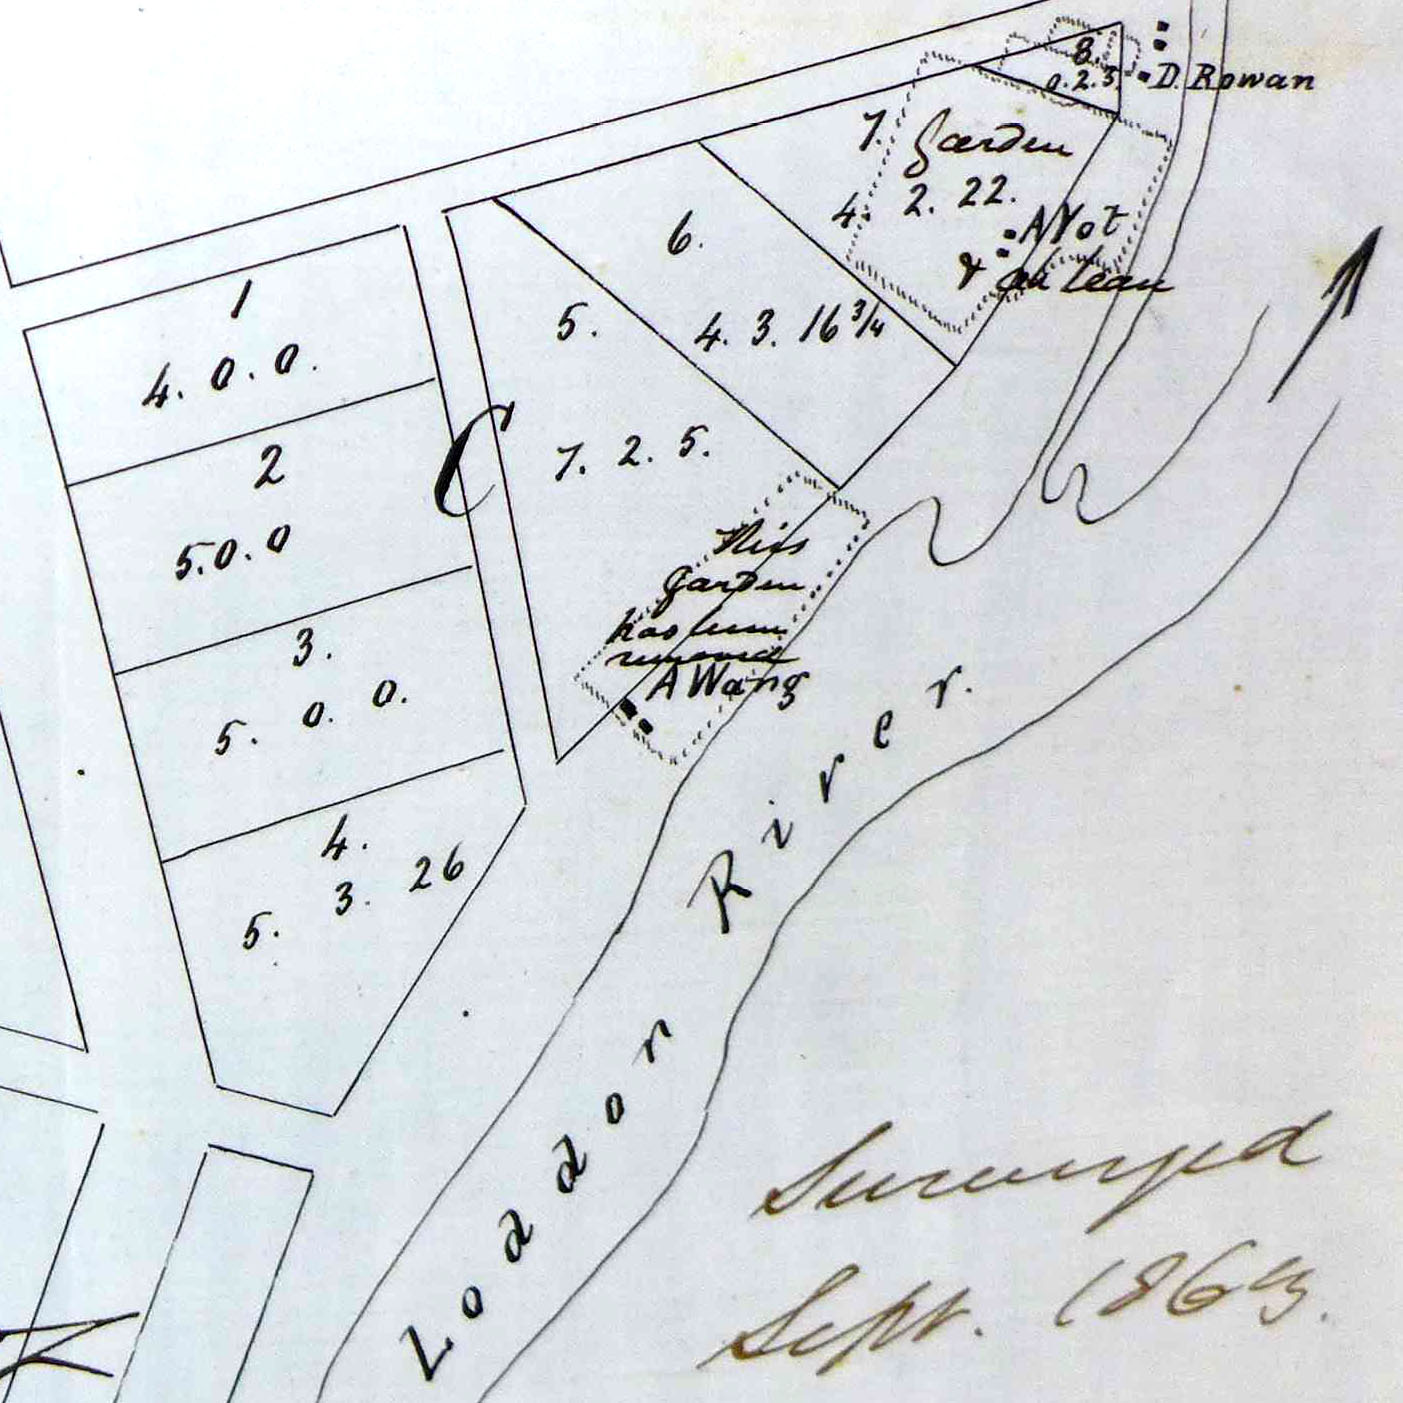 8.
0. 2. 5.
D. Rowan
7.
Garden
4. 2. 22.
A Yot
&
6.
4. 3. 16 3/4
1
4. 0. 0.
5.
7. 2. 5.
C
2
5. 0. 0
This
garden
has been
removed
A Wang
3.
5. 0. 0.
4.
5. 3. 26
Loddon River.
Surveyed
Sept. 1863.